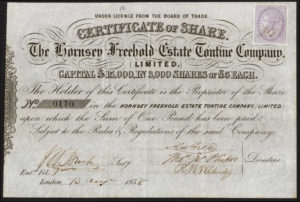 UNDER LICENCE FROM THE BOARD OF TRADE.
CERTIFICATE OF SHARE.
The Hornsey Freehold Estate Tontine Company,
LIMITED.
CAPITAL $15,000, IN 3,000 SHARES OF $5 EACH.
The Holder of this Certificate is the Proprietor of the Share
No 0170 IN THE HORNSEY FREEHOLD ESTATE TONTINE COMPANY, LIMITED,
upon which the Sum of One Pound has been paid
Subject to the Rules & Regulations of the said Company.
Directors
Ent. Fol.
London, 1858